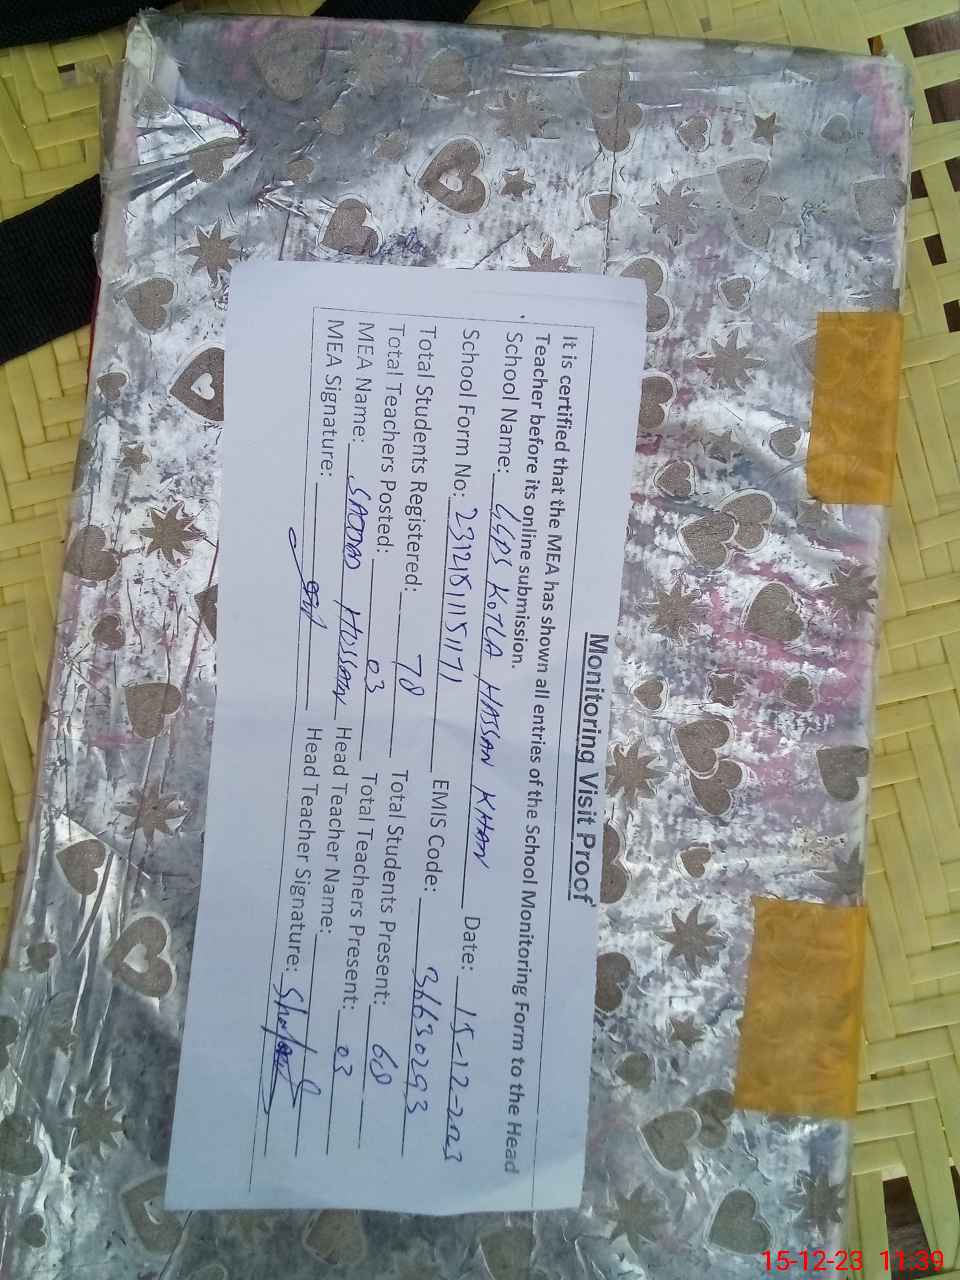 Monitoring Visit Proof
It is certified that the MEA has shown all entries of the School Monitoring Form to the Head
Teacher before its online submission.
School Name: GGPS KOTLA HASSAN KHAN Date: 15-12-2023
School Form No: EMIS Code: 36630293
Total Students Registered: 78 Total Students Present: 68
Total Teachers Posted: 03 Total Teachers Present: 03
MEA Name: HUSSAIN Head Teacher Name:
MEA Signature: Head Teacher Signature:
15-12-23 11:39